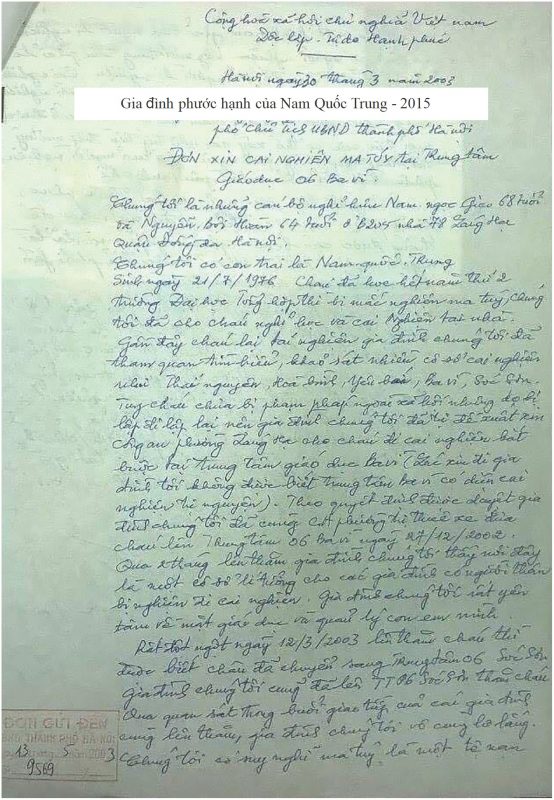 Cộng hoà xã hội chủ nghĩa Việt nam
Độc lập - Tự do Hạnh phúc
Hà nội ngày 30 tháng 3 năm 2003
Gia đình phước hạnh của Nam Quốc Trung - 2015
phố chủ tịch UBND thành phố Hà nội
ĐƠN XIN CAI NGHIỆN MA TÚY tại Trung tâm
Giáo dục 06 Ba vì.
Chúng tôi là những cán bộ nghỉ hưu Nam ngọc Giao 68 tuổi
và Nguyễn Hoàn 64 tuổi ở B205 nhà 78 Láng Hạ
Quận Đống đa Hà Nội.
Chúng tôi có con trai là Nam quốc Trung
Sinh ngày 21/7/1976 Cháu đã học hết năm thứ 2
trường Đại học Tổng hợp thì bị mắc nghiện ma tuý, chúng
tôi đã cho cháu nghỉ học và cai nghiện tại nhà.
Gần đây cháu lại tái nghiện gia đình chúng tôi đã
tham quan tìm hiểu, khảo sát nhiều cơ sở cai nghiện
như Thái nguyên, Hoà bình, Yên bái, Ba vì, Sóc Sơn.
Tuy cháu chưa bị phạm pháp ngoài xã hội nhưng do bị
lặp đi lặp lại nên gia đình chúng tôi đã tự đề xuất xin
công an phường Láng Hạ cho cháu đi cai nghiện bắt
buộc tại trung tâm giáo dục Ba vì (Lúc xin đi gia
đình tôi không được biết trung tâm Ba vì có diện cai
nghiện tự nguyện). Theo quyết định được duyệt gia
đình chúng tôi đã cùng CA phường tự thuê xe đưa
cháu lên Trung tâm 06 Ba vì ngày 27/12/2002.
Qua tháng lên thăm gia đình chúng tôi thấy nơi đây
là một cơ sở lí tưởng cho các gia đình có người thân
bị nghiện đi cai nghiện. Gia đình chúng tôi rất yên
tâm về mặt giáo dục và quản lý con em mình
Rất đột ngột ngày 12/3/2003 lên thăm cháu thì
được biết cháu đã chuyển sang Trung tâm 06 Sóc Sơn
Gia đình chúng tôi cũng đã lên TT 06 Sóc Sơn thăm cháu
Qua quan sát trong buổi giao tiếp của các gia đình
cùng lên thăm, gia đình chúng tôi vô cùng lo lắng.
Chúng tôi có suy nghĩ ma tuý là một tệ nạn
ĐƠN GỬI ĐẾN
UBND THÀNH PHỐ HÀ NỘI
13 5 2003
9569